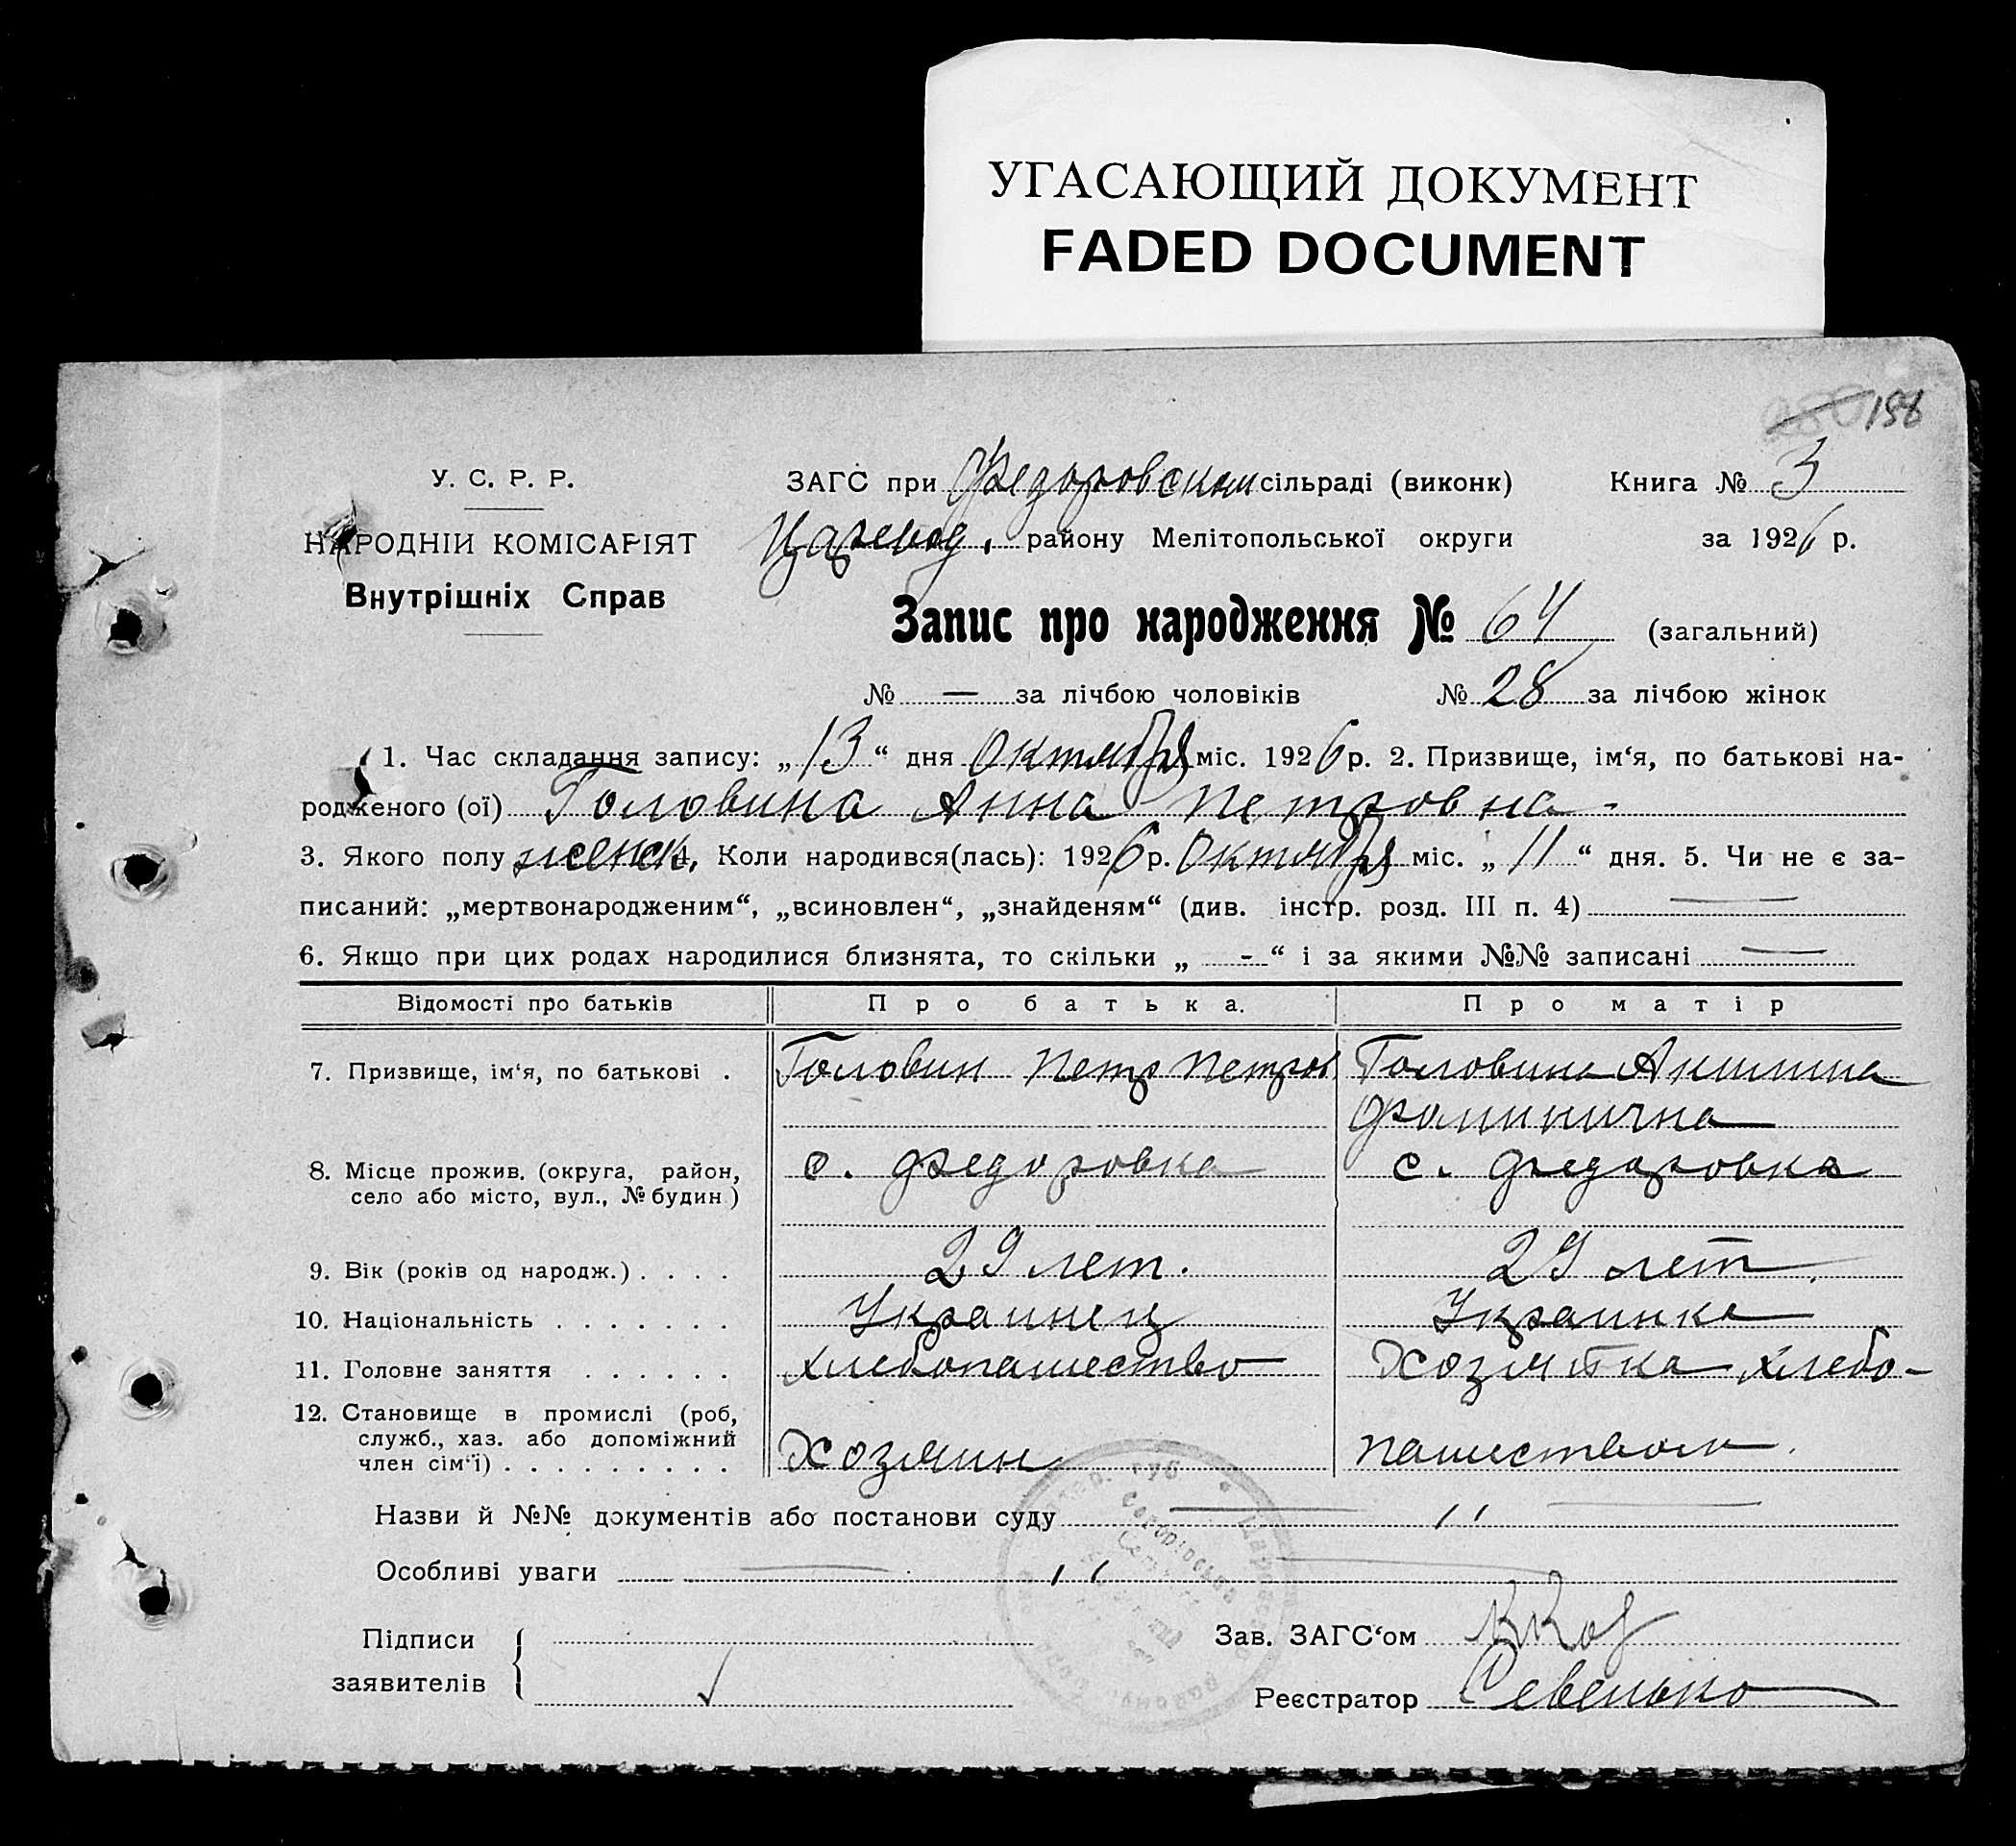 УГАСАЮЩИЙ ДОКУМЕНТ
FADED DOCUMENT
198
У. С. Р. Р.
НАРОДНІЙ КОМІСАРІЯТ
Внутрішніх Справ
ЗАГС при Федоровском сільраді (виконк) Книга № 3
Царевод. району Мелітопольської округи за 1926 р.
Запис про народження № 64 (загальний)
№ — за лічбою чоловіків № 28 за лічбою жінок
1. Час складання запису: „13“ дня Октября міс. 1926 р. 2. Призвище, ім‘я, по батькові на-
родженого (ої) Головина Анна Петровна
3. Якого полу женск. 4. Коли народився(лась): 1926 р. Октября міс. „11“ дня. 5. Чи не є за-
писаний: „мертвонародженим“, „всиновлен“, „знайденям“ (див. інстр. розд. III п. 4) —
6. Якщо при цих родах народилися близнята, то скільки „ - “ і за якими №№ записані —
Відомості про батьків Про батька. Про матір
7. Призвище, ім‘я, по батькові . Головин Петр Петров. Головина Акилина
Фоминична
8. Місце прожив. (округа, район, с. Федоровка с. Федоровка
село або місто, вул., № будин.)
9. Вік (років од народж.) . . . . 29 лет. 29 лет.
10. Національність . . . . . . . Украинец Украинка
11. Головне заняття . . . . . . Хлебопашество Хозяйка хлебо-
12. Становище в промислі (роб,
служб., хаз. або допоміжний
член сім‘ї) . . . . . . . . . Хозяин пашеством.
Назви й №№ документів або постанови суду — 〃 —
Особливі уваги — 〃 —
Підписи
заявителів
Зав. ЗАГС‘ом
Реєстратор Севенько